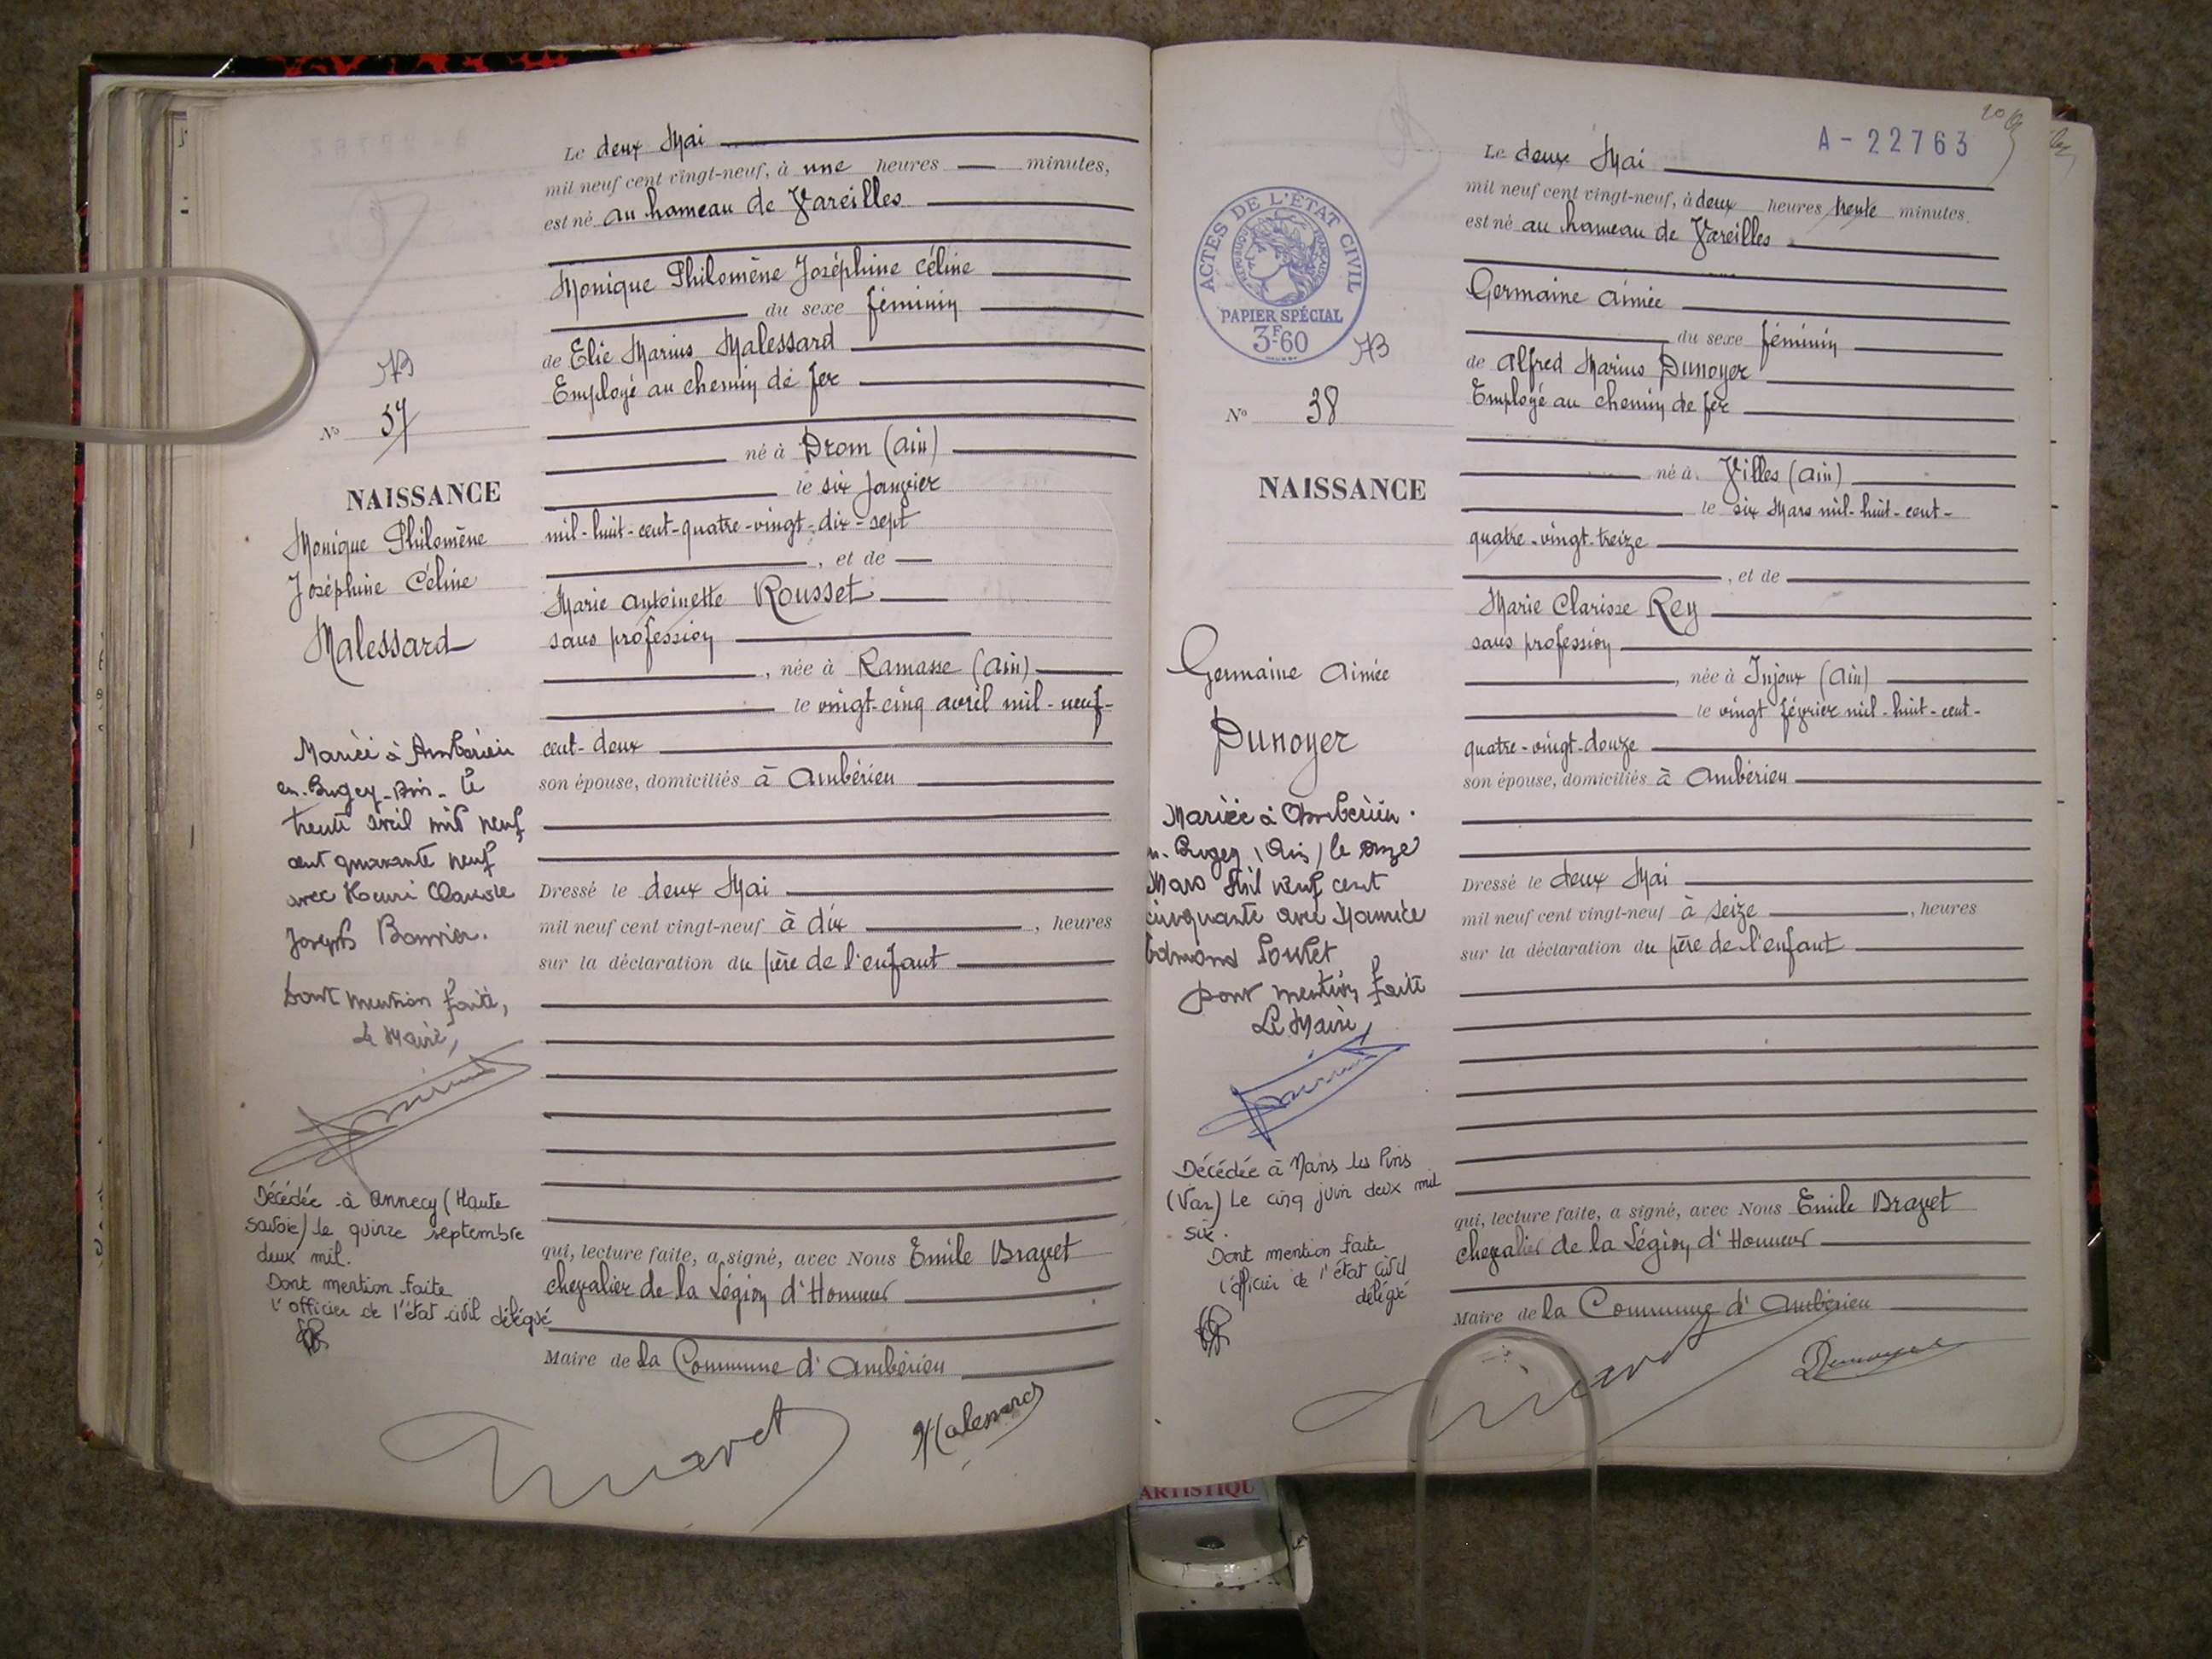 Le deux Mai
mil neuf cent vingt-neuf, à une heures — minutes,
est né au hameau de Vareilles
Monique Philomène Joséphine Céline
du sexe féminin
de Elie Marius Malessard
Employé au chemin de fer
né à Drom (Ain)
le six Janvier
mil-huit-cent-quatre-vingt-dix-sept
, et de
Marie Antoinette Rousset
sans profession
, née à Ramasse (Ain)
le vingt-cinq avril mil-neuf-
cent-deux
son épouse, domiciliés à Ambérieu
Dressé le deux Mai
mil neuf cent vingt-neuf à dix , heures
sur la déclaration du père de l'enfant
qui, lecture faite, a signé, avec Nous Emile Bravet
chevalier de la Légion d'Honneur
Maire de la Commune d'Ambérieu
Bravet
Malessard
N° 37
NAISSANCE
Monique Philomène
Joséphine Céline
Malessard
Mariée à Ambérieu
en-Bugey-Ain- le
trente avril mil neuf
cent quarante neuf
avec Henri Claude
Joseph
Dont mention faite,
Le Maire,
Décédée à Annecy (Haute
Savoie) le quinze septembre
deux mil.
Dont mention faite
l'officier de l'état civil délégué
A-22763
Le deux Mai
mil neuf cent vingt-neuf, à deux heures trente minutes,
est né au hameau de Vareilles
Germaine Aimée
du sexe féminin
de Alfred Marius Dunoyer
Employé au chemin de fer
né à Villes (Ain)
le six Mars mil-huit-cent-
quatre-vingt-treize
, et de
Marie Clarisse Rey
sans profession
, née à Injoux (Ain)
le vingt février mil-huit-cent-
quatre-vingt-douze
son épouse, domiciliés à Ambérieu
Dressé le deux Mai
mil neuf cent vingt-neuf à seize , heures
sur la déclaration du père de l'enfant
qui, lecture faite, a signé, avec Nous Emile Bravet
chevalier de la Légion d'Honneur
Maire de la Commune d'Ambérieu
Bravet
Dunoyer
ACTES DE L'ÉTAT CIVIL
RÉPUBLIQUE FRANÇAISE
PAPIER SPÉCIAL
3F60
N° 38
NAISSANCE
Germaine Aimée
Dunoyer
Mariée à Ambérieu-
en-Bugey (Ain) le onze
Mars mil neuf cent
cinquante avec Maurice
Edmond
Dont mention faite
Le Maire,
Décédée à Nans les Pins
(Var) Le cinq juin deux mil
six.
Dont mention faite
l'officier de l'état civil
délégué
ARTISTIQU